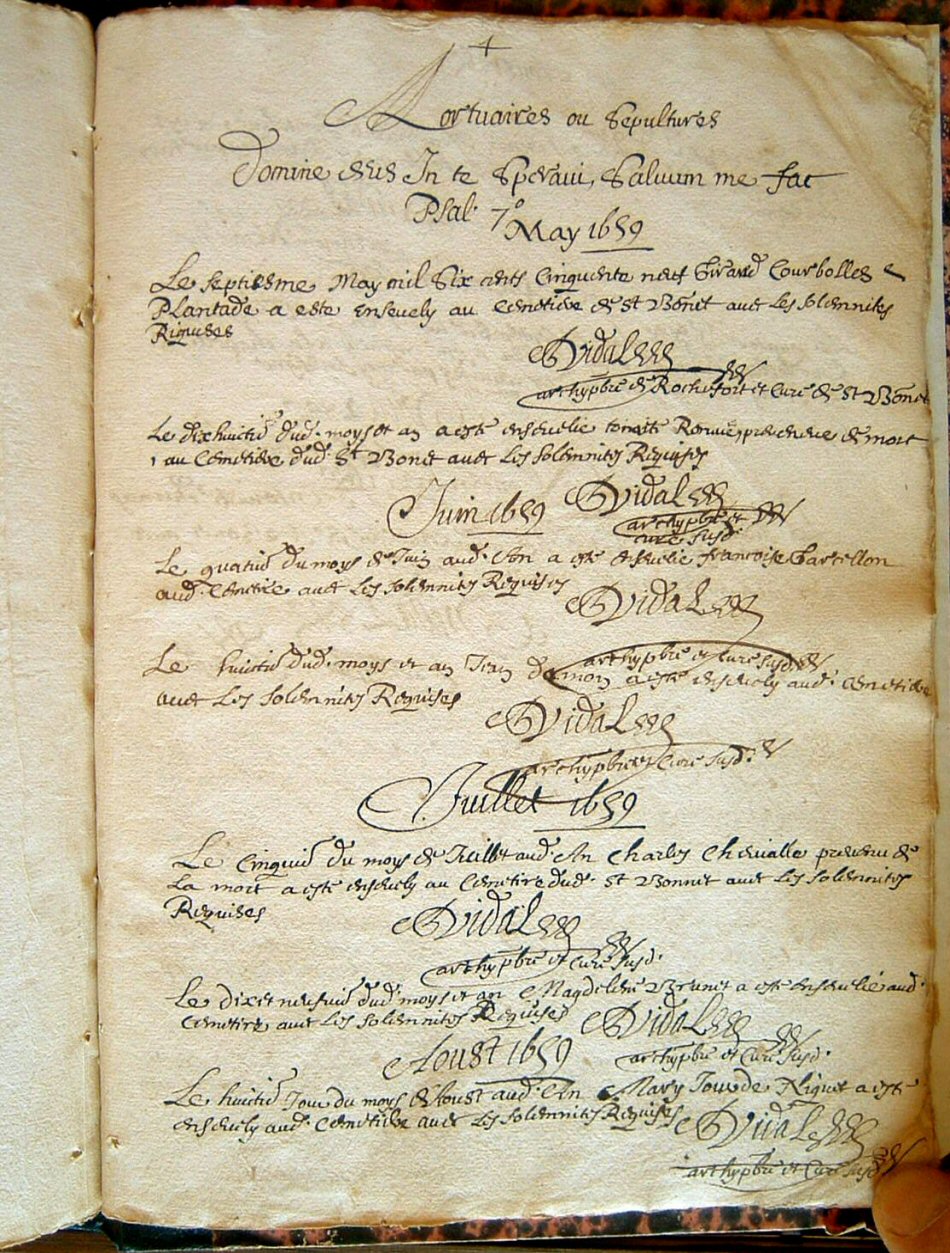 Mortuaires ou Sepultures
Domine deus In te Speravi, Salvum me fac
Psal. 7°
May 1659
Le septiesme May mil Six cents Cinquente neuf Girard Courbolles
Plantade a este ensevely au Cemetiere de St Bonet avec Les solemnites
Requises
Vidal
archypbre de Rochefort et Curé de St Bonet
Le dixhuitie dud. moys et an a este ensevelie prevenue de mort
au Cemetiere dud. St Bonet avec Les solemnites Requises
Juin 1659 Vidal
archypbre et
curé susd.
Le quatrie du moys de Juin aud. An a este ensevelie francoise
aud. Cemetiere avec Les solemnites Requises
Vidal
archypbre et Curé susd.
Le huictie dud. moys et an Jean a este ensevely aud. Cemetiere
avec Les solemnites Requises
Vidal
archypbre et Curé susd.
Juillet 1659
Le Cinquie du moys de Juillet aud. An Charles Chevalle prevenu de
La mort a este ensevely au Cemetire dud. St Bonnet avec Les solemnites
Requises
Vidal
archypbre et Curé susd.
Le dixet neufvie dud. moys et an Magdelene Brunet a este ensevelie aud.
Cemetire avec Les solemnites Requises Vidal
Aoust 1659 archypbre et Curé susd.
Le huictie Jour du moys d'Aoust aud. An Mary a este
ensevely aud. Cemetiere avec Les solemnites Requises Vidal
archypbre et Curé susd.